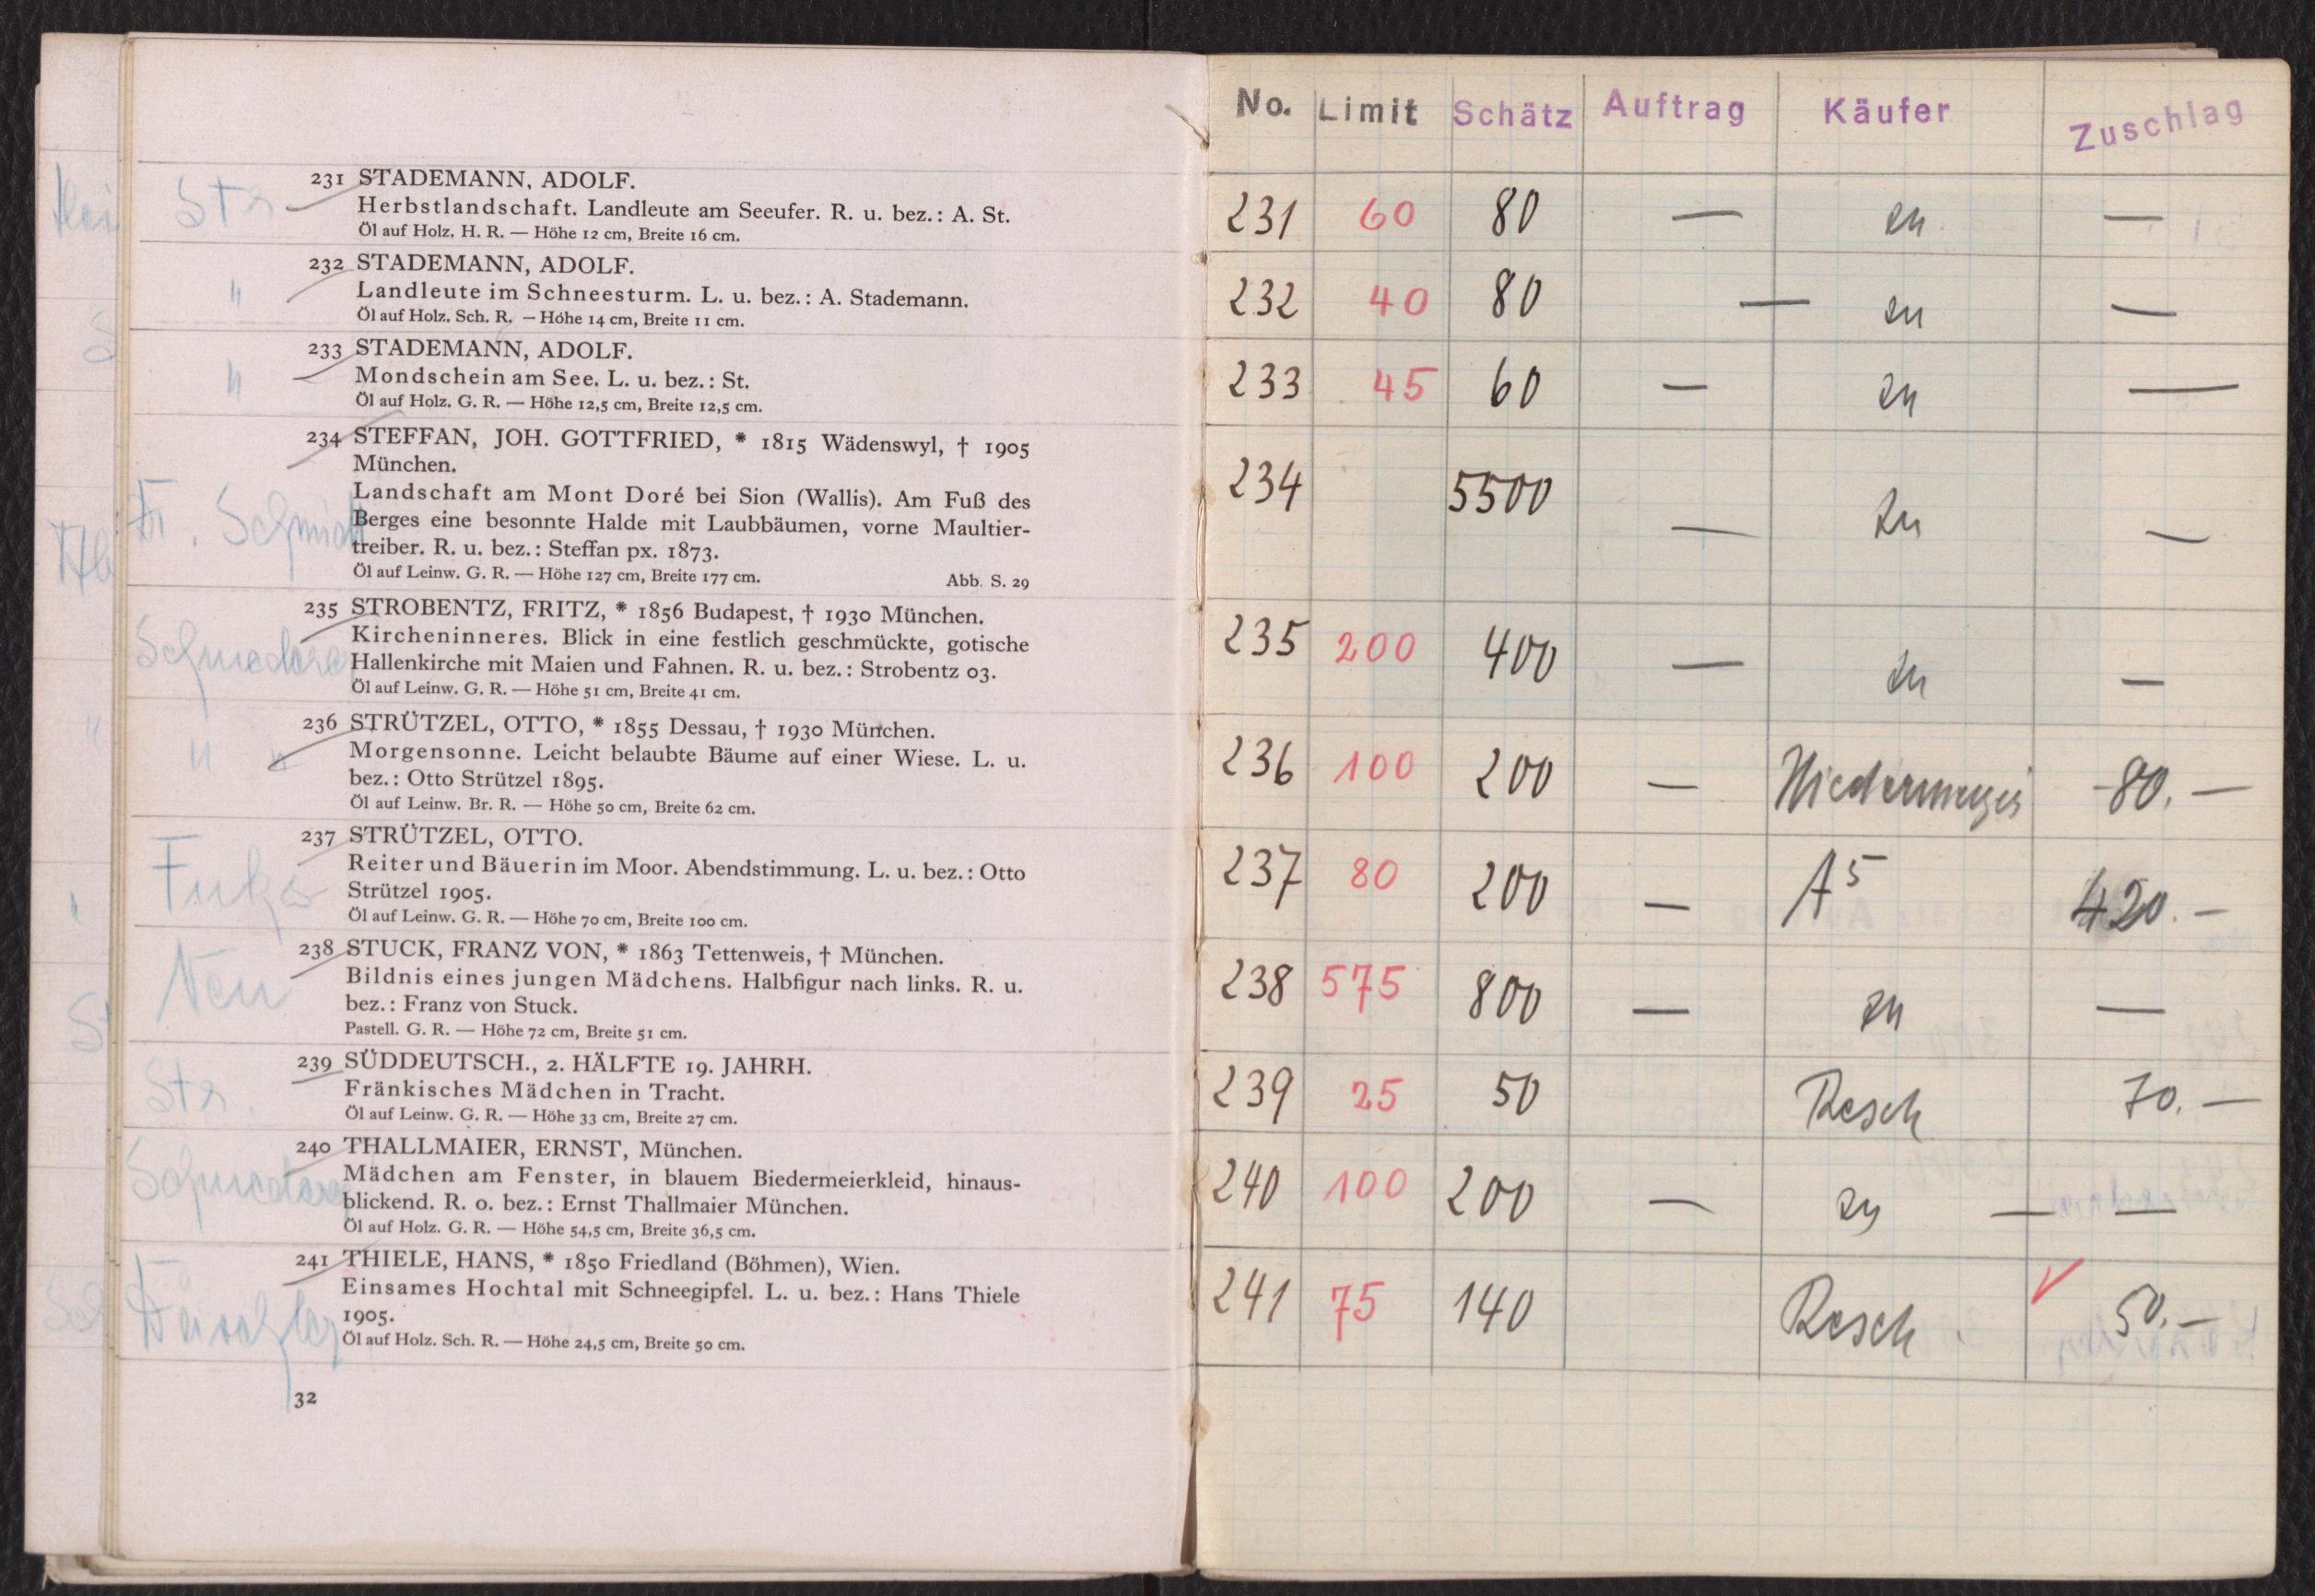 231 STADEMANN, ADOLF.
Str
Herbstlandschaft. Landleute am Seeufer. R. u. bez.: A. St.
Öl auf Holz. H. R. — Höhe 12 cm, Breite 16 cm.
232 STADEMANN, ADOLF.
"
Landleute im Schneesturm. L. u. bez.: A. Stademann.
Öl auf Holz. Sch. R. — Höhe 14 cm, Breite 11 cm.
233 STADEMANN, ADOLF.
"
Mondschein am See. L. u. bez.: St.
Öl auf Holz. G. R. — Höhe 12,5 cm, Breite 12,5 cm.
234 STEFFAN, JOH. GOTTFRIED, * 1815 Wädenswyl, † 1905
München.
Landschaft am Mont Doré bei Sion (Wallis). Am Fuß des
Schmidt
Berges eine besonnte Halde mit Laubbäumen, vorne Maultier-
treiber. R. u. bez.: Steffan px. 1873.
Öl auf Leinw. G. R. — Höhe 127 cm, Breite 177 cm. Abb. S. 29
235 STROBENTZ, FRITZ, * 1856 Budapest, † 1930 München.
Kircheninneres. Blick in eine festlich geschmückte, gotische
Hallenkirche mit Maien und Fahnen. R. u. bez.: Strobentz 03.
Öl auf Leinw. G. R. — Höhe 51 cm, Breite 41 cm.
236 STRÜTZEL, OTTO, * 1855 Dessau, † 1930 München.
" "
Morgensonne. Leicht belaubte Bäume auf einer Wiese. L. u.
bez.: Otto Strützel 1895.
Öl auf Leinw. Br. R. — Höhe 50 cm, Breite 62 cm.
237 STRÜTZEL, OTTO.
Reiter und Bäuerin im Moor. Abendstimmung. L. u. bez.: Otto
Strützel 1905.
Öl auf Leinw. G. R. — Höhe 70 cm, Breite 100 cm.
238 STUCK, FRANZ VON, * 1863 Tettenweis, † München.
Neu
Bildnis eines jungen Mädchens. Halbfigur nach links. R. u.
bez.: Franz von Stuck.
Pastell. G. R. — Höhe 72 cm, Breite 51 cm.
239 SÜDDEUTSCH., 2. HÄLFTE 19. JAHRH.
Str.
Fränkisches Mädchen in Tracht.
Öl auf Leinw. G. R. — Höhe 33 cm, Breite 27 cm.
240 THALLMAIER, ERNST, München.
Mädchen am Fenster, in blauem Biedermeierkleid, hinaus-
blickend. R. o. bez.: Ernst Thallmaier München.
Öl auf Holz. G. R. — Höhe 54,5 cm, Breite 36,5 cm.
241 THIELE, HANS, * 1850 Friedland (Böhmen), Wien.
Einsames Hochtal mit Schneegipfel. L. u. bez.: Hans Thiele
1905.
Öl auf Holz. Sch. R. — Höhe 24,5 cm, Breite 50 cm.
32
No. Limit Schätz Auftrag Käufer Zuschlag
231 60 80 — zu —
232 40 80 — zu —
233 45 60 — zu —
234 5500 — zu —
235 200 400 — zu —
236 100 200 — Niedermeyer 80.—
237 80 200 — A5 420.—
238 575 800 — zu —
239 25 50 Resch 70.—
240 100 200 — zu — —
241 75 140 Resch 50.—